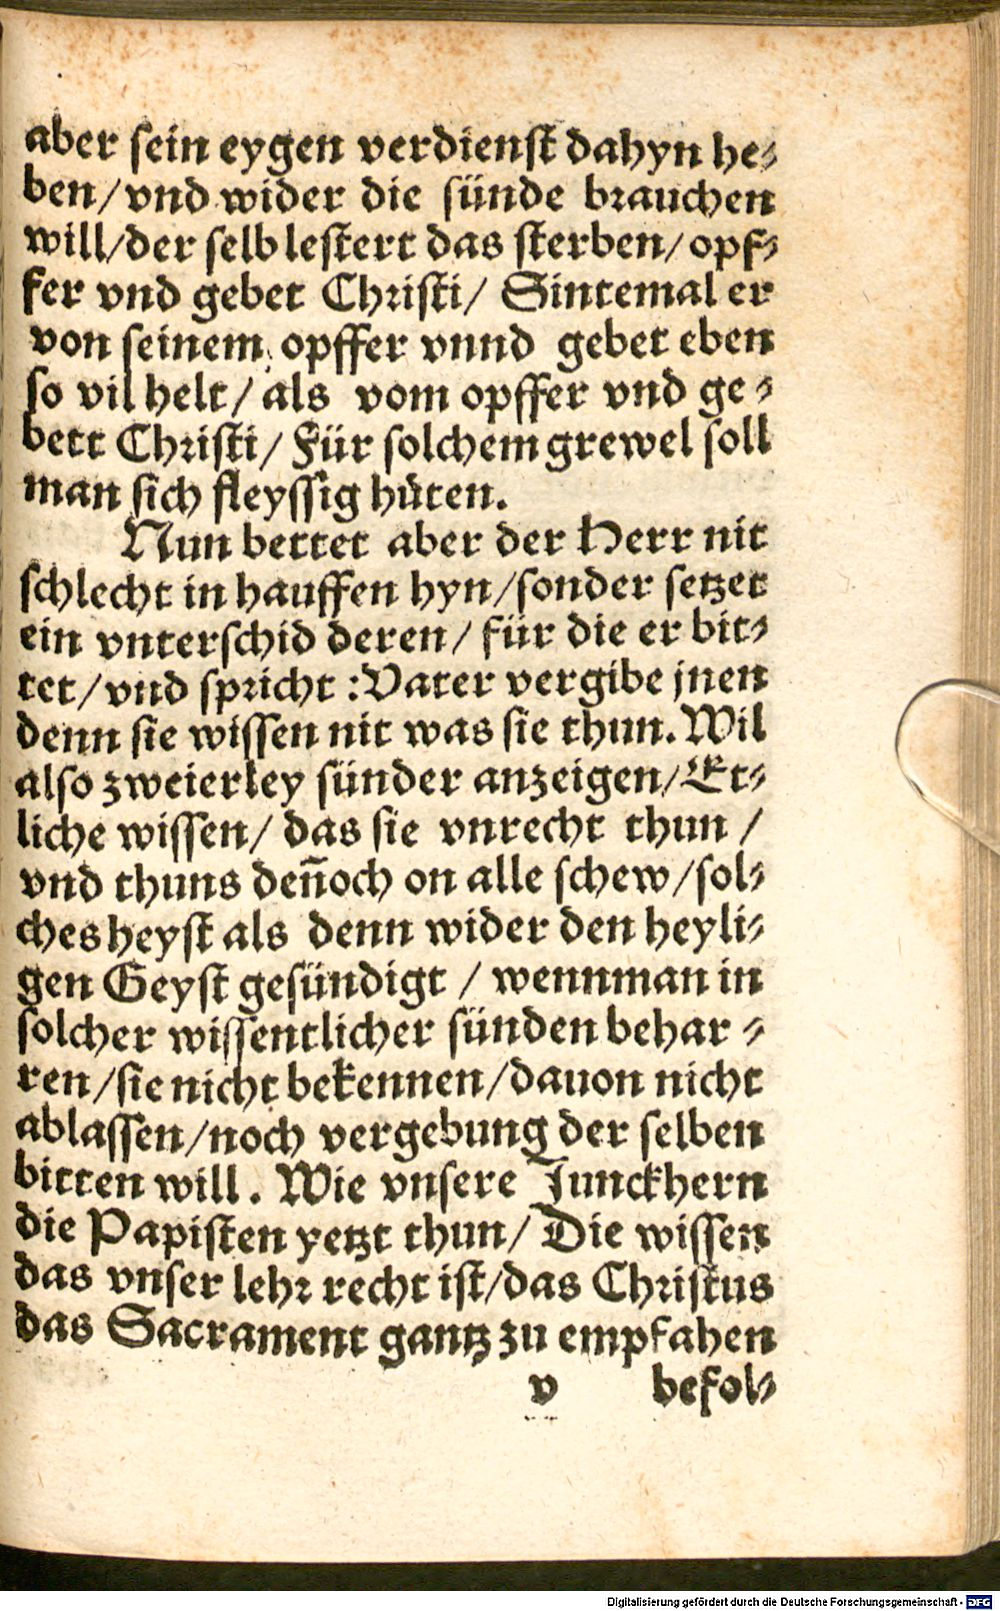 aber sein eygen verdienst dahyn he⸗
ben/ vnd wider die sünde brauchen
will/ der selb lestert das sterben/ opf⸗
fer vnd gebet Christi/ Sintemal er
von seinem opffer vnnd gebet eben
so vil helt/ als vom opffer vnd ge⸗
bett Christi/ Für solchem grewel soll
man sich fleyssig hüten.
Nun bettet aber der Herr nit
schlecht in hauffen hyn/ sonder setzet
ein vnterschid deren/ für die er bit⸗
tet/ vnd spricht: Vater vergibe jnen
denn sie wissen nit was sie thun. Wil
also zweierley sünder anzeigen/ Et⸗
liche wissen/ das sie vnrecht thun/
vnd thuns den̄och on alle schew/ sol⸗
ches heyst als denn wider den heyli⸗
gen Geyst gesündigt/ wennman in
solcher wissentlicher sünden behar⸗
ren/ sie nicht bekennen/ dauon nicht
ablassen/ noch vergebung der selben
bitten will. Wie vnsere Junckhern
die Papisten yetzt thun/ Die wissen
das vnser lehr recht ist/ das Christus
das Sacrament gantz zu empfahen
v befol⸗
Digitalisierung gefördert durch die Deutsche Forschungsgemeinschaft - DFG